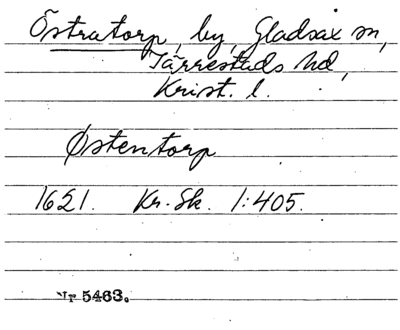 Östratorp, by, Gladsax sn,
Järrestads hd,
Krist. l.
Østentorp
1621. Kr. Sk. 1:405.
Nr 5463.